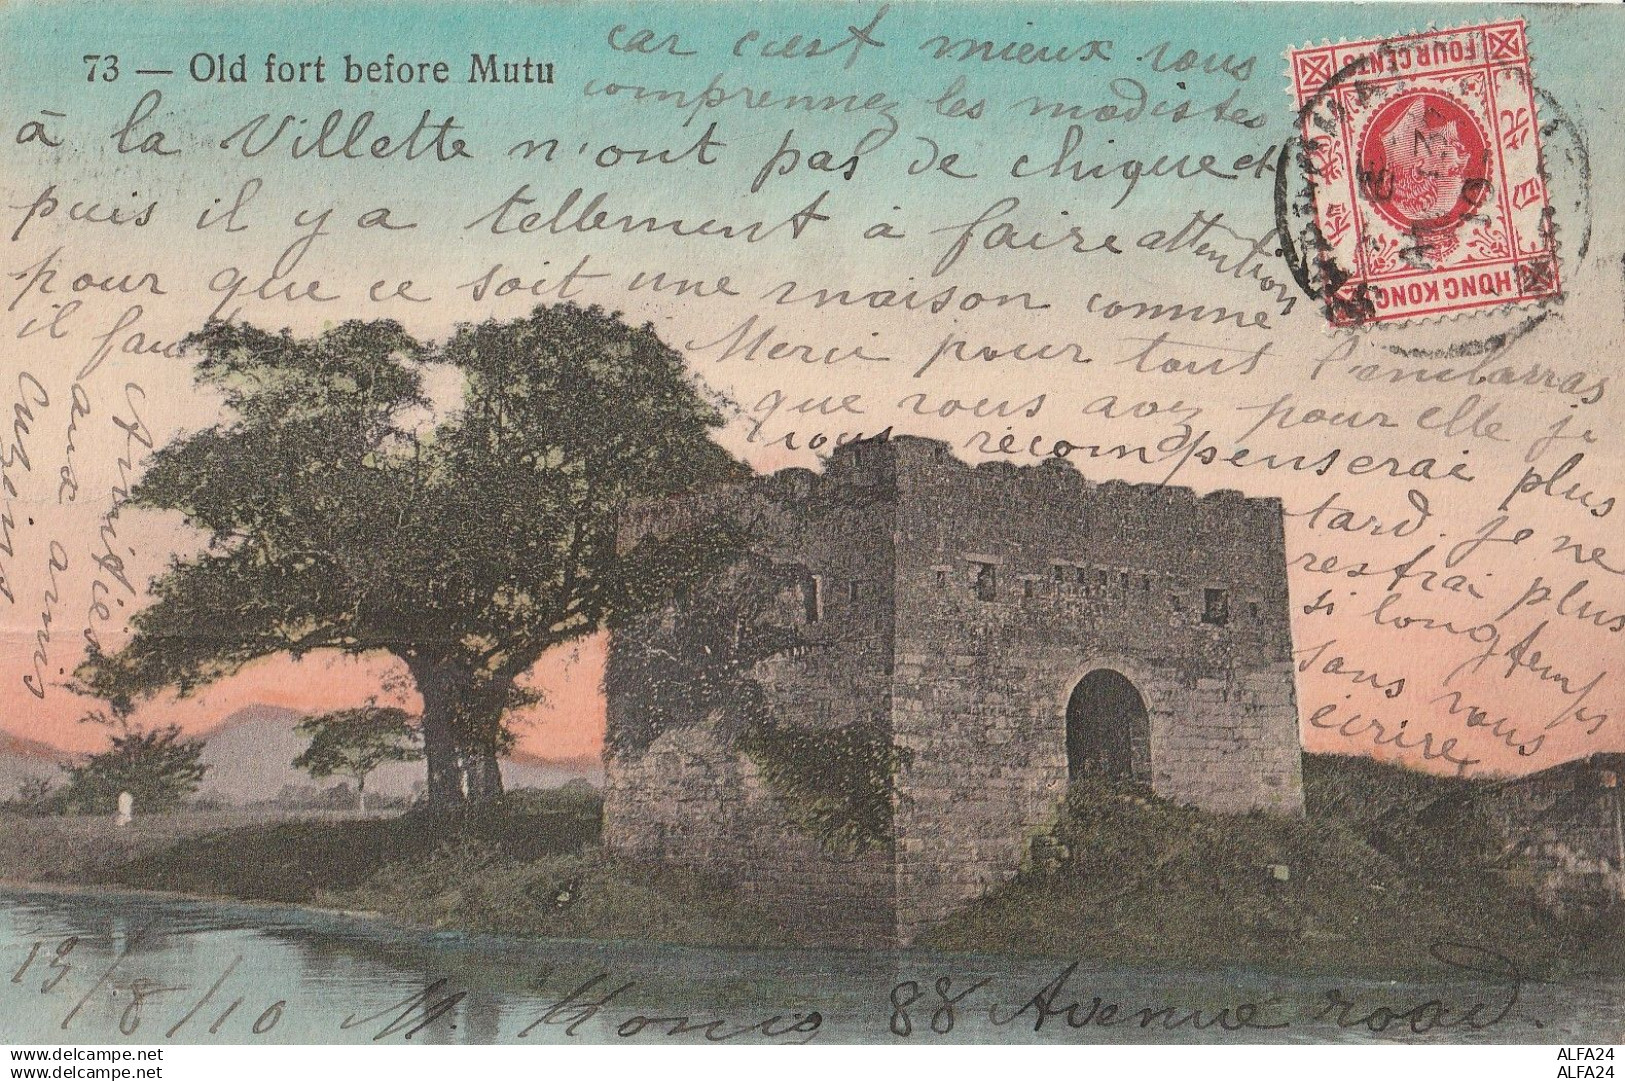 73 — Old fort before Mutu
car c'est mieux vous
comprennez les modistes
à la Villette n'ont pas de chique et
puis il y a tellement à faire attention
pour que ce soit une maison comme
il faut
Merci pour tout l'embarras
que vous avez pour elle je
vous recompenserai plus
tard. je ne
restrai plus
si longtemps
sans vous
écrire
Amitiés
aux amis
Cuzins
19/8/10 M. Konig 88 Avenue road.
FOUR CENTS
HONG KONG
ALFA24
ALFA24
www.delcampe.net
www.delcampe.net